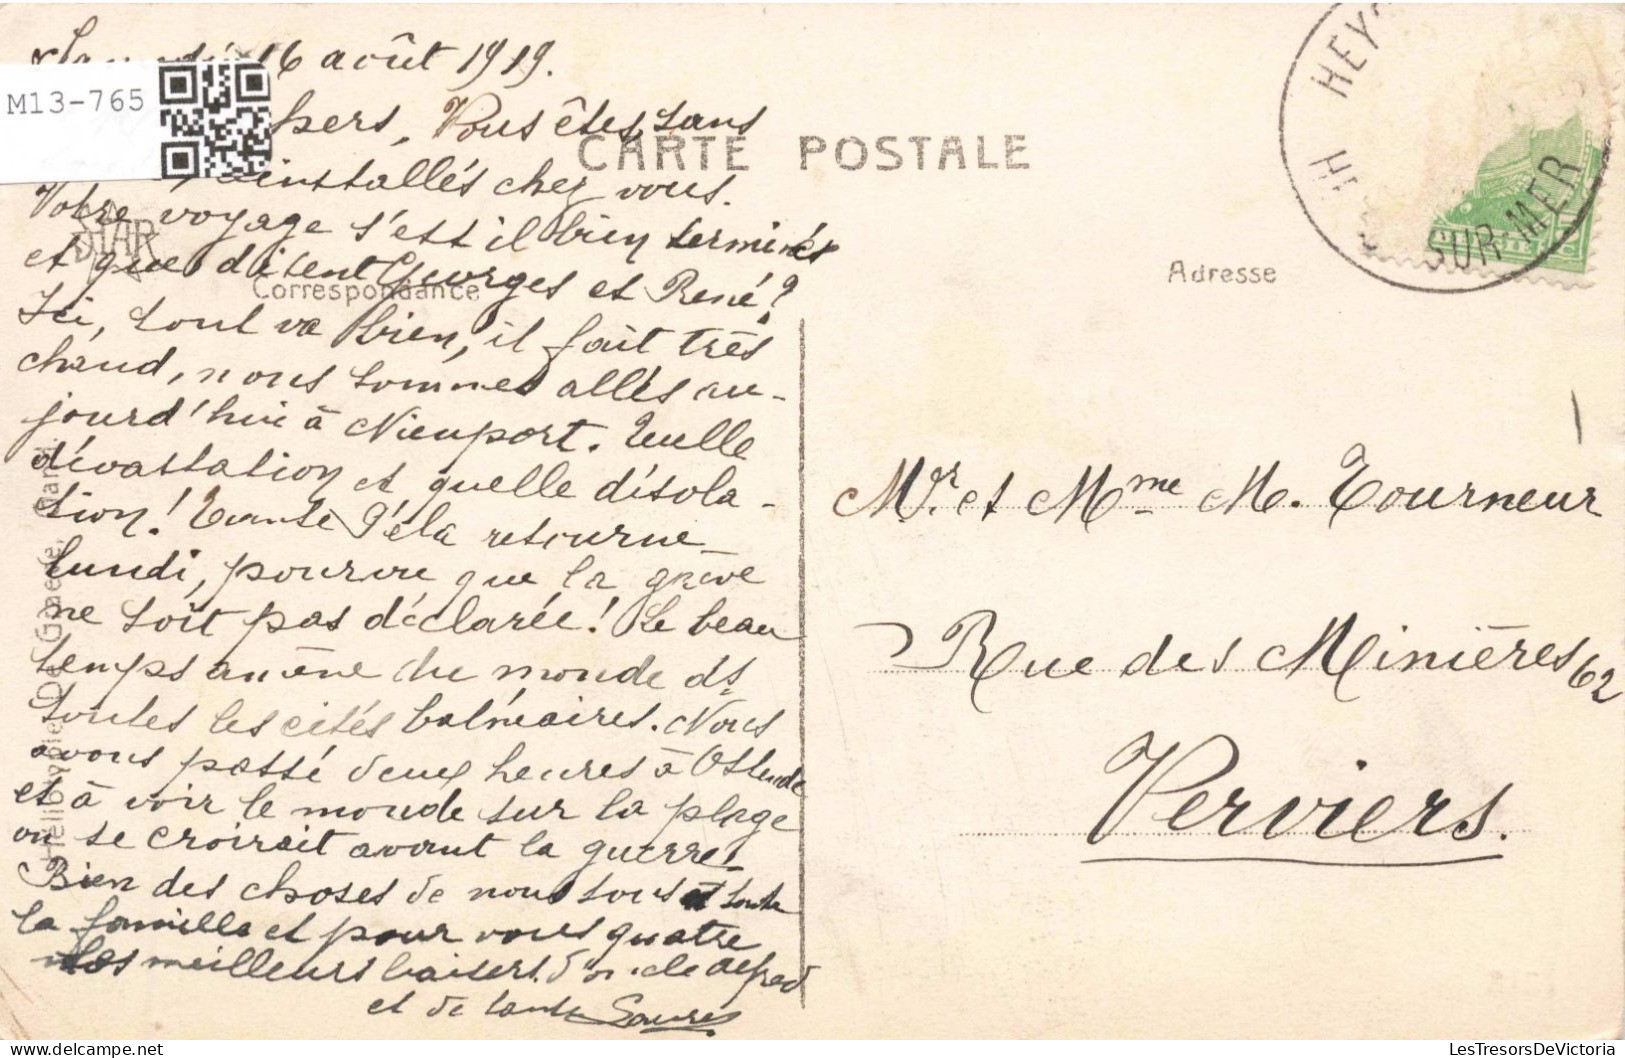 Samedi 16 août 1919.
M13-765
chers, Vous êtes sans
réinstallés chez vous.
Votre voyage s'est il bien terminés
et que disent Georges et René?
Ici, tout va bien, il fait très
chaud, nous sommes allés au-
jourd'hui à Nieuport. Quelle
dévastation et quelle désola-
tion! Tante retourne
lundi, pourvu que la grève
ne soit pas déclarée! Le beau
temps amène du monde ds
toutes les cités balnéaires. Nous
avons passé deux heures à Ostende
et à voir le monde sur la plage
on se croirait avant la guerre!
Bien des choses de nous tous et toute
la famille et pour vous quatre
les meilleurs baisers d'oncle Alfred
et de tante Laure
CARTE POSTALE
STAR
Correspondance
Adresse
HEY
SUR MER
Mr. et Mme M. Tourneur
Rue des Minières 62
Verviers.
LesTresorsDeVictoria